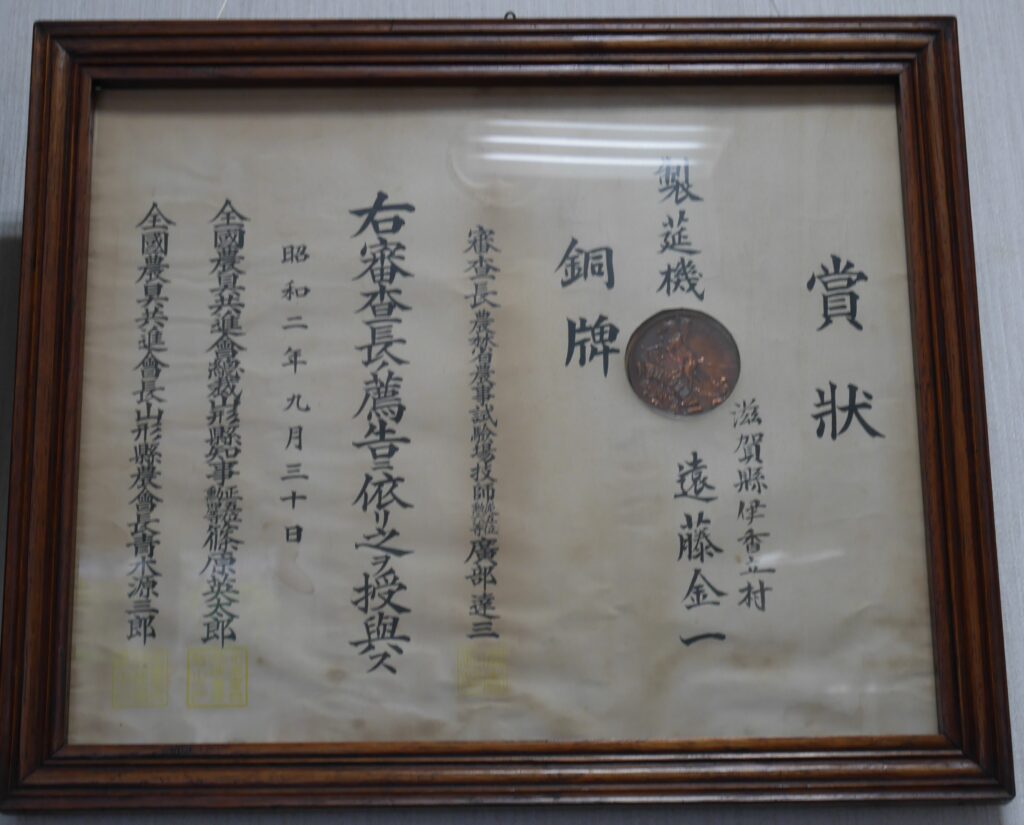 賞狀
滋賀縣伊香立村
製莚機 遠藤金一
銅牌
審查長 農林省農事試驗場技師 廣部達三
右審查長ノ薦告ニ依リ之ヲ授與ス
昭和二年九月三十日
全國農具共進會總裁山形縣知事 篠原英太郎
全國農具共進會長山形縣農會長青木源三郎